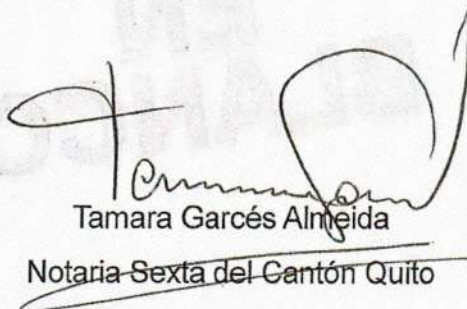 Tamara Garcés Almeida
Notaria Sexta del Cantón Quito